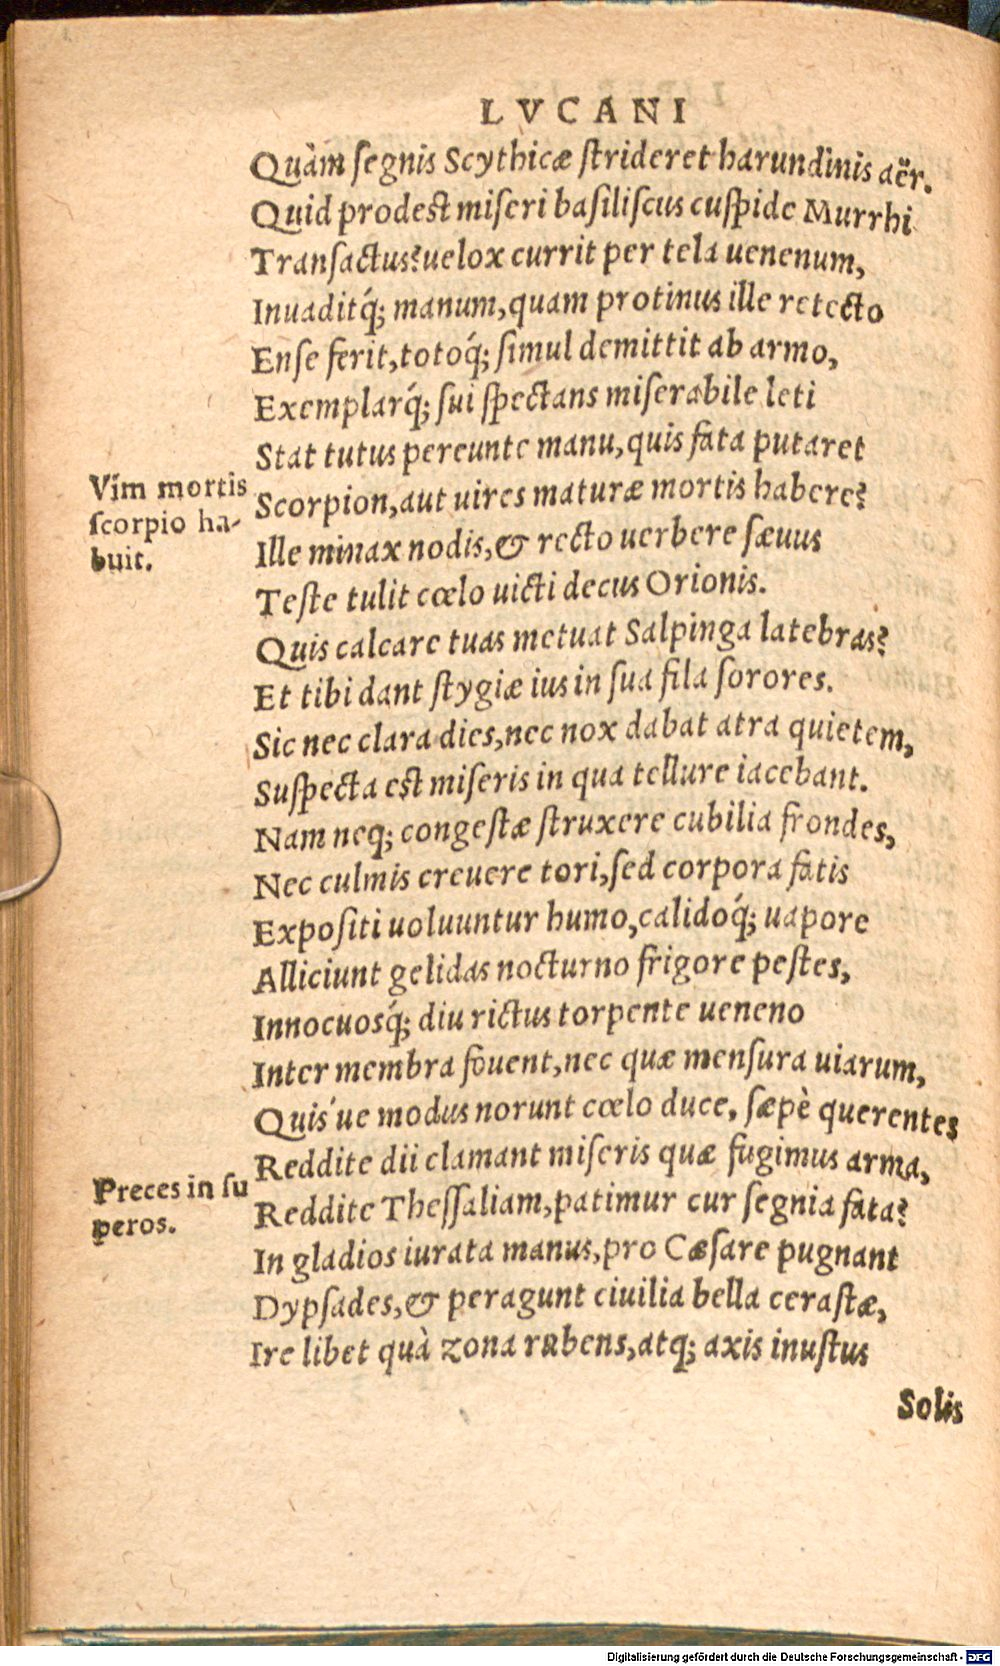 LVCANI
Quàm ſegnis Scythicæ ſtrideret harundinis aër.
Quid prodest miſeri baſiliſcus cuſpide Murrhi
Tranſactus? uelox currit per tela uenenum,
Inuaditq́; manum, quam protinus ille retecto
Enſe ferit, totoq́; ſimul demittit ab armo,
Exemplarq́; ſui ſpectans miſerabile leti
Stat tutus pereunte manu, quis fata putaret
Vim mortis
Scorpion, aut uires maturæ mortis habere?
ſcorpio ha-
Ille minax nodis, & recto uerbere ſæuus
buit.
Teſte tulit cœlo uicti decus Orionis.
Quis calcare tuas metuat Salpinga latebras?
Et tibi dant ſtygiæ ius in ſua fila ſorores.
Sic nec clara dies, nec nox dabat atra quietem,
Suſpecta est miſeris in qua tellure iacebant.
Nam neq; congeſtæ ſtruxere cubilia frondes,
Nec culmis creuere tori, ſed corpora fatis
Expoſiti uoluuntur humo, calidoq́; uapore
Alliciunt gelidas nocturno frigore peſtes,
Innocuosq́; diu rictus torpente ueneno
Inter membra fouent, nec quæ menſura uiarum,
Quis'ue modus norunt cœlo duce, ſæpè querentes
Reddite dii clamant miſeris quæ fugimus arma,
Preces in ſu
Reddite Theſſaliam, patimur cur ſegnia fata?
peros.
In gladios iurata manus, pro Cæſare pugnant
Dypſades, & peragunt ciuilia bella ceraſtæ,
Ire libet quà zona rubens, atq; axis inuſtus
Solis
Digitalisierung gefördert durch die Deutsche Forschungsgemeinschaft - DFG